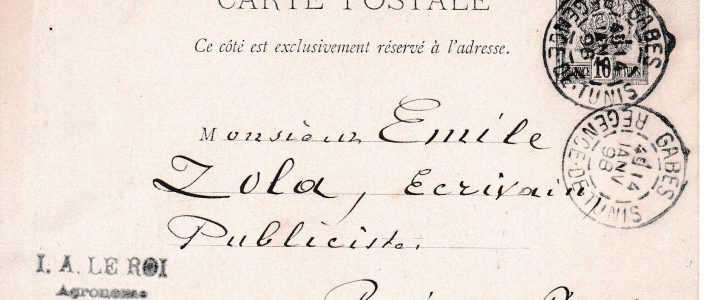 CARTE POSTALE
Ce côté est exclusivement réservé à l'adresse.
GABES
14
JANV
98
REGENCE-DE-TUNIS
10
Monsieur Emile
Zola, Ecrivain
Publiciste.
GABES
14
JANV
98
REGENCE-DE-TUNIS
I. A. LE ROI
Agronome